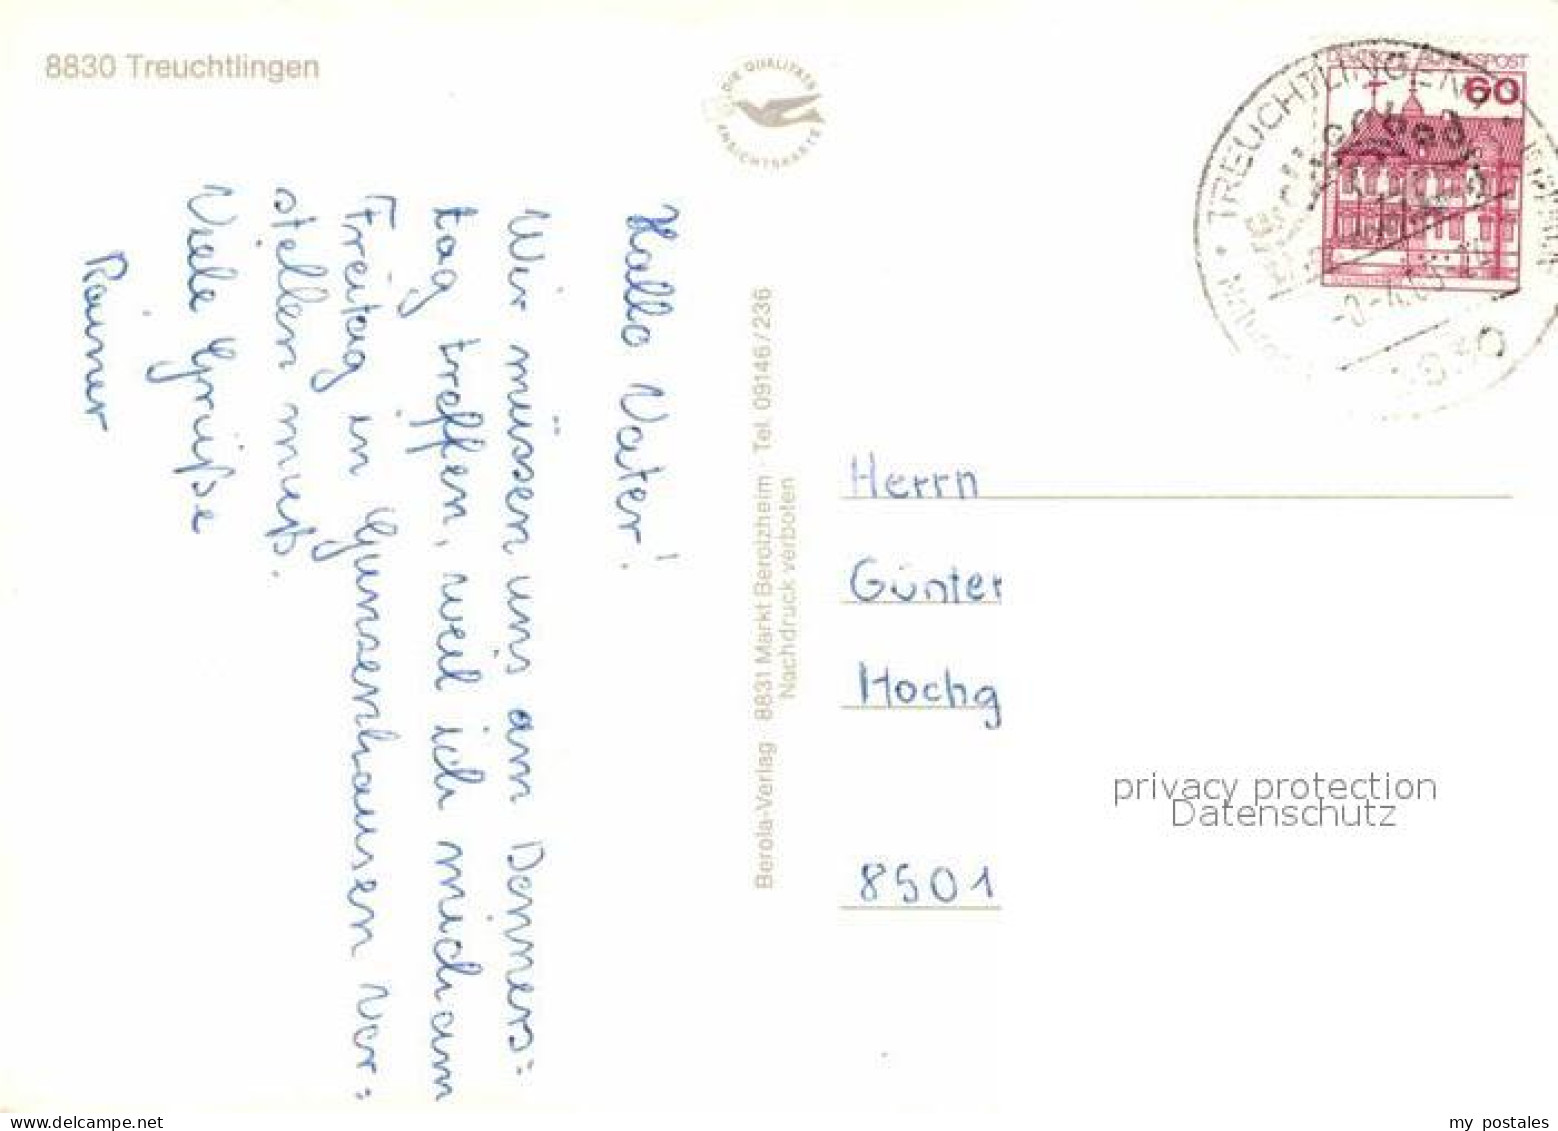 8830 Treuchtlingen
DIE QUALITÄTS
ANSICHTSKARTE
Hallo Vater!
Wir müssen uns am Donners=
tag treffen, weil ich mich am
Freitag in Gunzenhausen vor=
stellen muß.
Viele Grüße
Rainer
Berola-Verlag · 8831 Markt Berolzheim · Tel. 09146/236
Nachdruck verboten
DEUTSCHE BUNDESPOST
60
TREUCHTLINGEN
8830
Herrn
Günter
Hochg
8501
privacy protection
Datenschutz
my postales